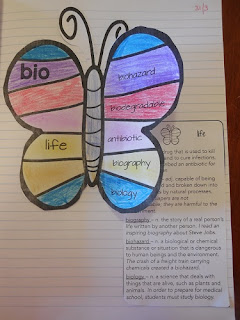 bio
life
biohazard
biodegradable
antibiotic
biography
biology
life
ng that is used to kill
nd to cure infections.
ibed an antibiotic for
ed, capable of being
nt and broken down into
s by natural processes.
pers are not
se, they are harmful to the
ment.
biography – n. the story of a real person's
life written by another person. I read an
inspiring biography about Steve Jobs.
biohazard – n. a biological or chemical
substance or situation that is dangerous
to human beings and the environment.
The crash of a freight train carrying
chemicals created a biohazard.
biology – n. a science that deals with
things that are alive, such as plants and
animals. In order to prepare for medical
school, students must study biology.